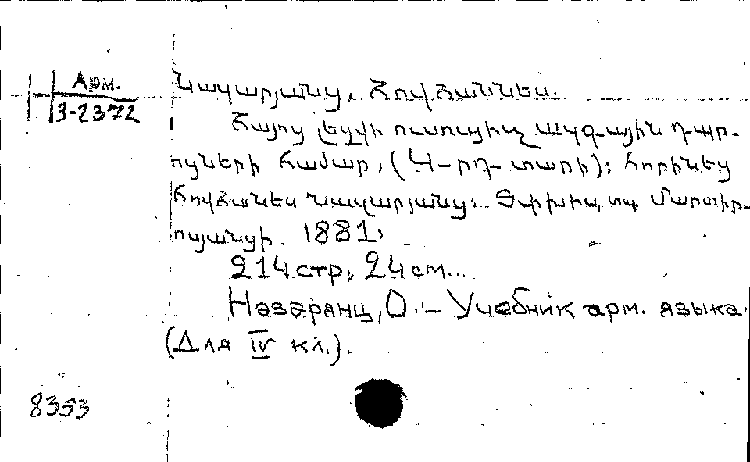 Арм.
3-2372
Նազարյանց, Հովհաննես.
Հայոց լեզվի ուսուցիչ ազգային դպր-
ոցների համար, (4-րդ տարի): հորինեց
Հովհաննես Նազարյանց: Թիֆլիս, տպ Մարտիր-
ոսյանցի 1881,
214 стр, 24 см...
Назарянц, О. – Учебник арм. языка.
(Для IV кл.).
8353